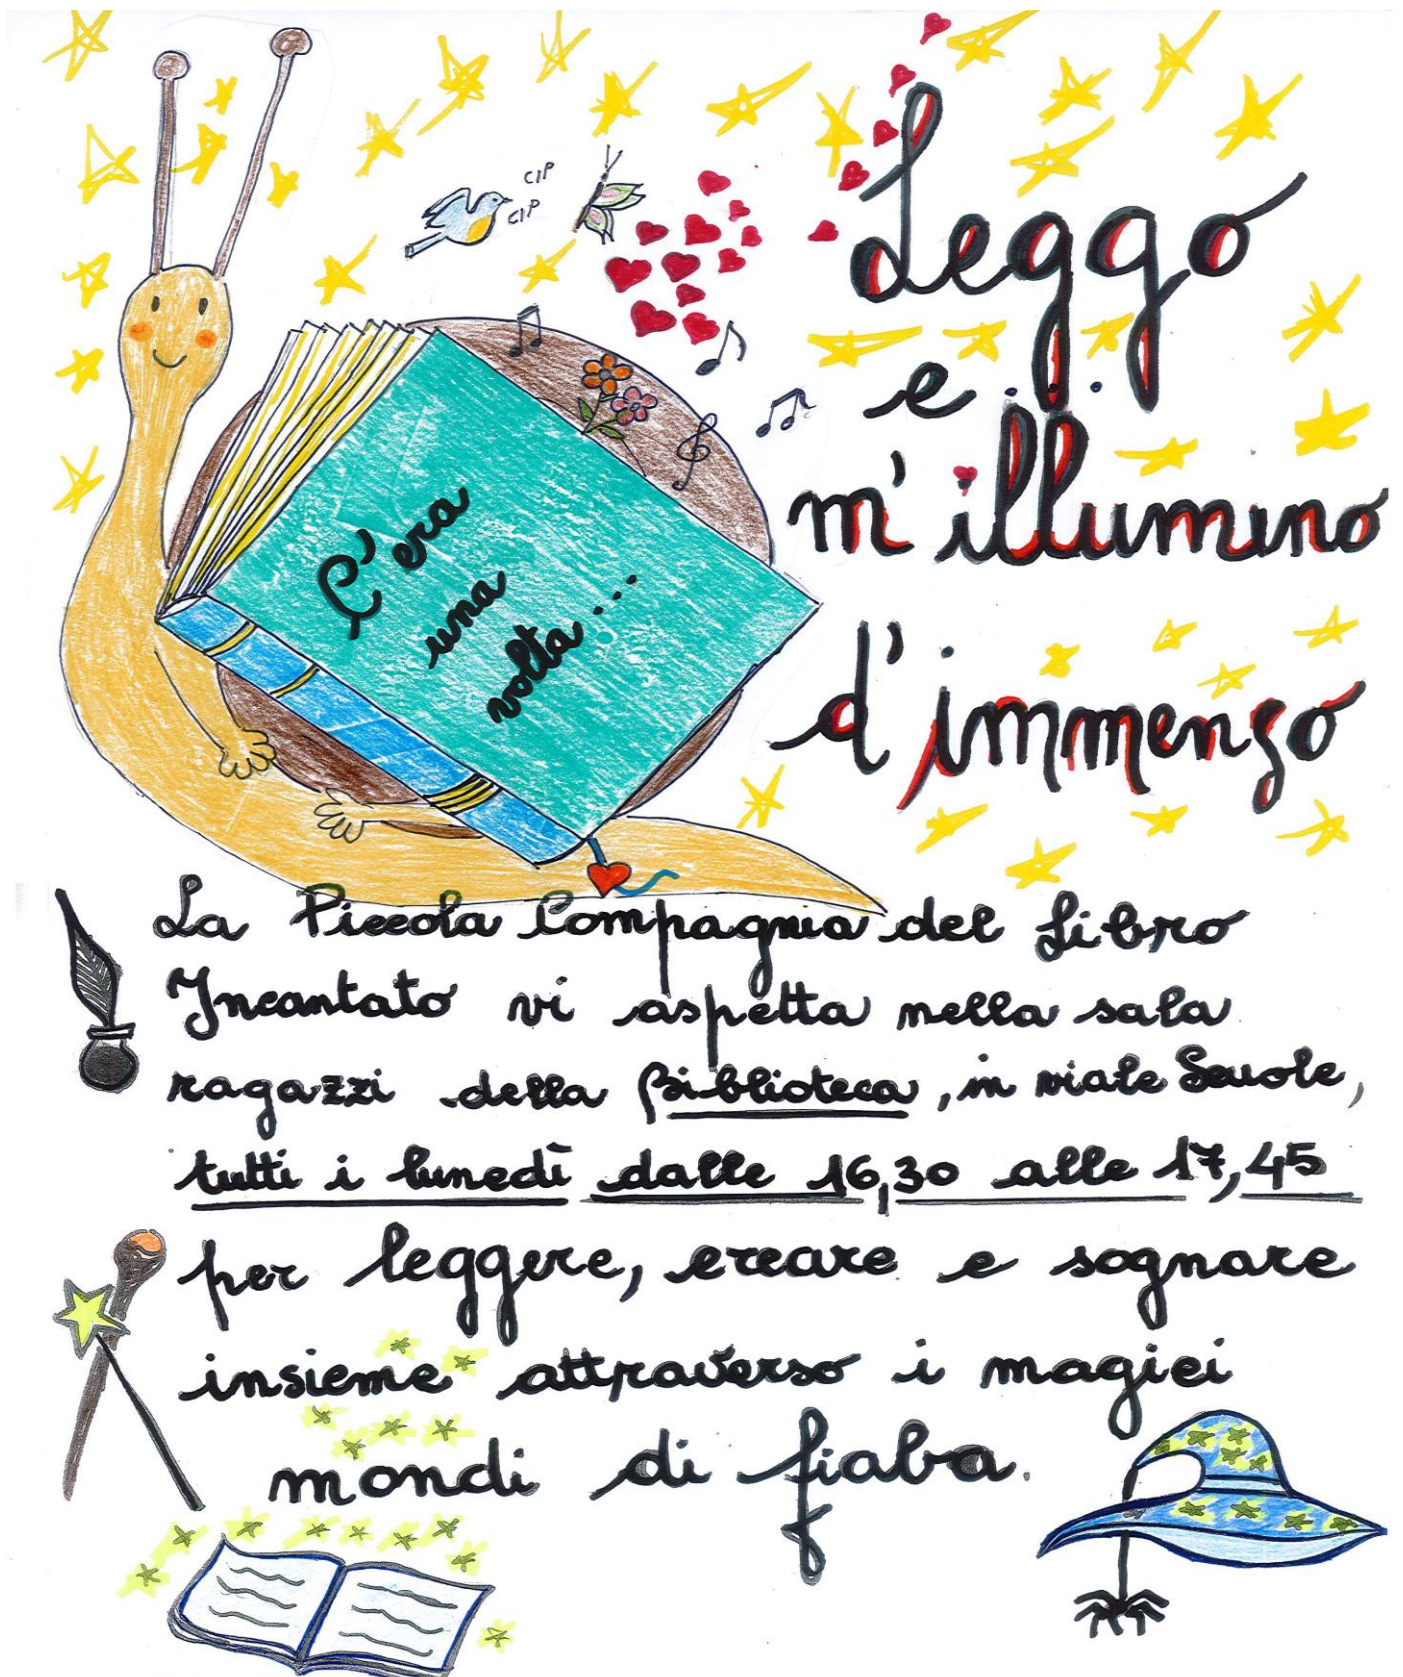 CIP
CIP
Leggo
e
m'illumino
d'immenso
C'era
una
volta...
La Piccola Compagnia del Libro
Incantato vi aspetta nella sala
ragazzi della Biblioteca, in viale Scuole,
tutti i lunedì dalle 16,30 alle 17,45
per leggere, creare e sognare
insieme attraverso i magici
mondi di fiaba.